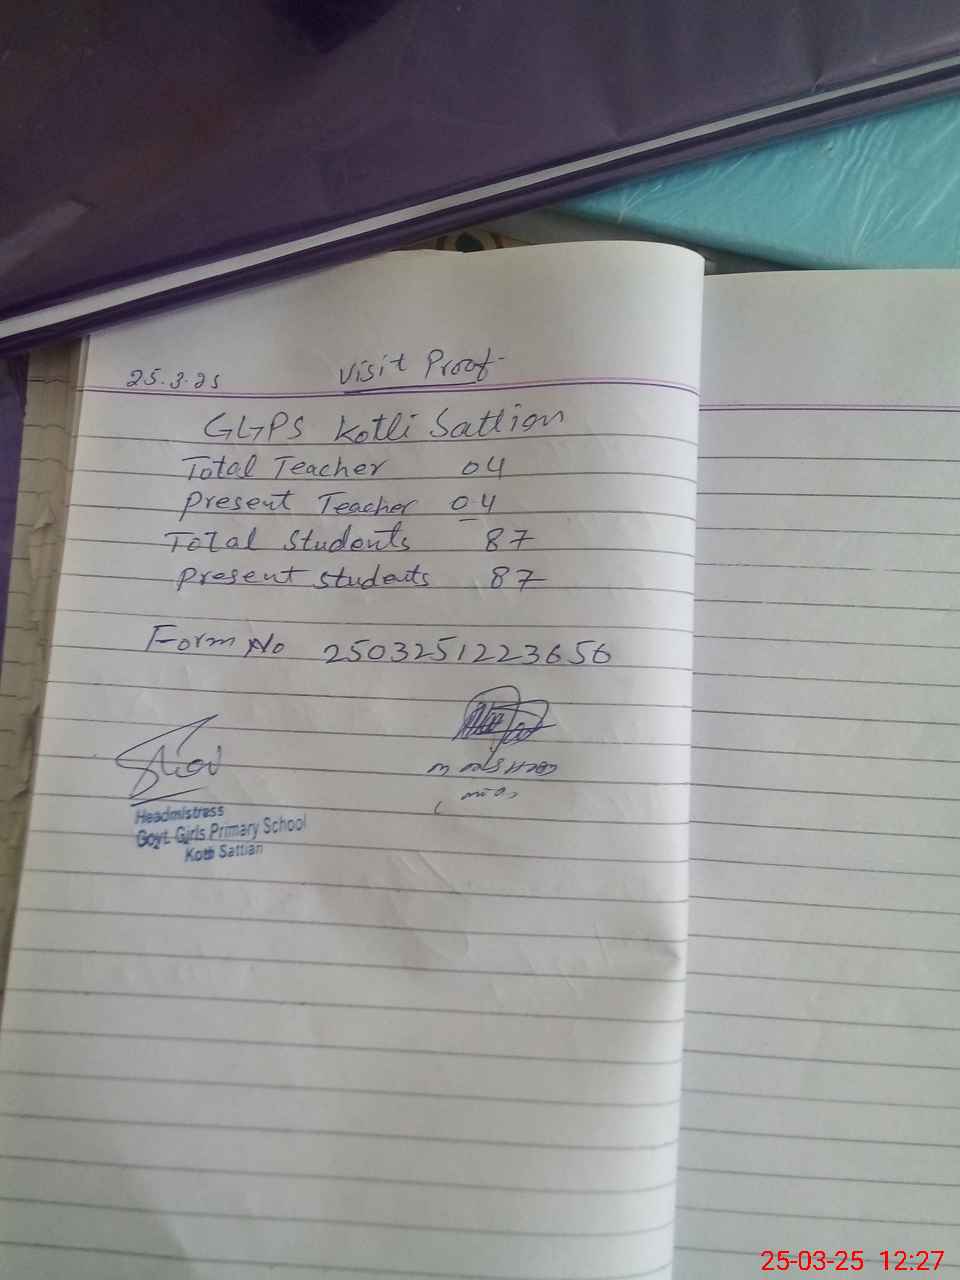 25.3.25 Visit Proof
GGPS Kotli Sattian
Total Teacher 04
Present Teacher 04
Total Students 87
Present students 87
Form No 2503251223656
Headmistress
Govt. Girls Primary School
Kotli Sattian
25-03-25 12:27